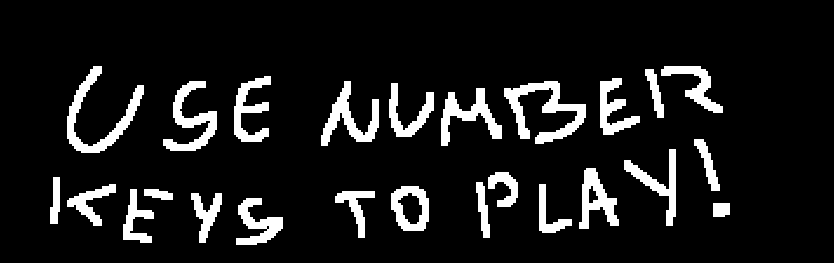 USE NUMBER
KEYS TO PLAY!